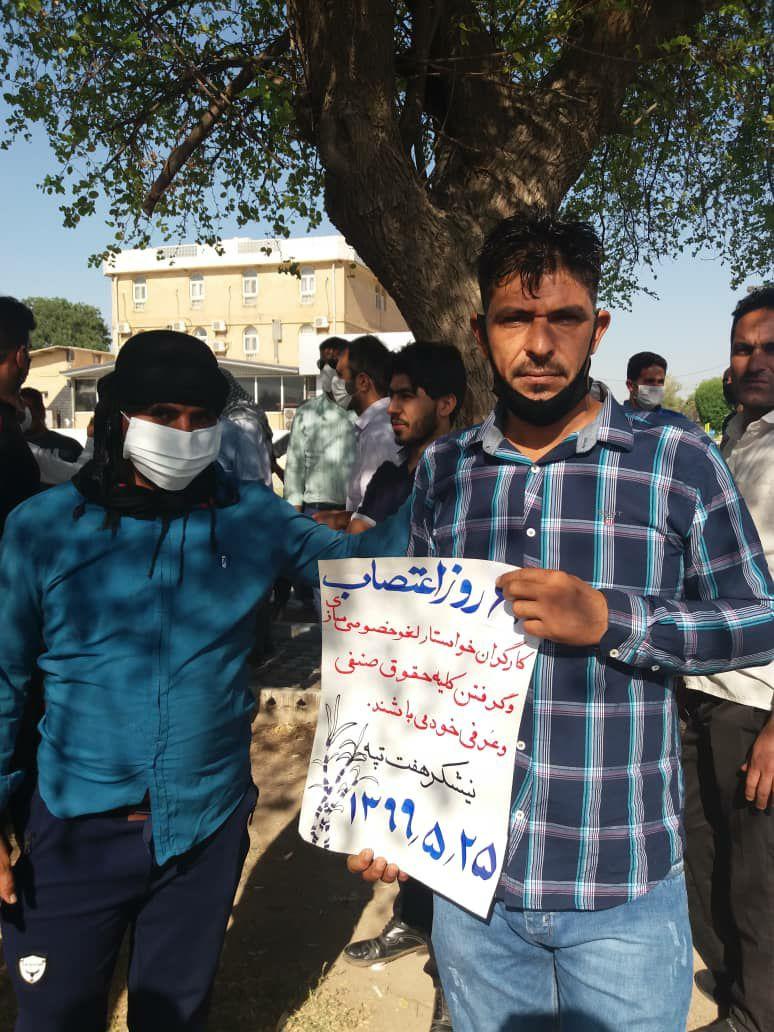 روز اعتصاب
کارگران خواستار لغو خصوصی سازی
و گرفتن کلیه حقوق صنفی
و عرفی خود می باشند.
نیشکر هفت تپه
۱۳۹۹٫۵٫۲۵